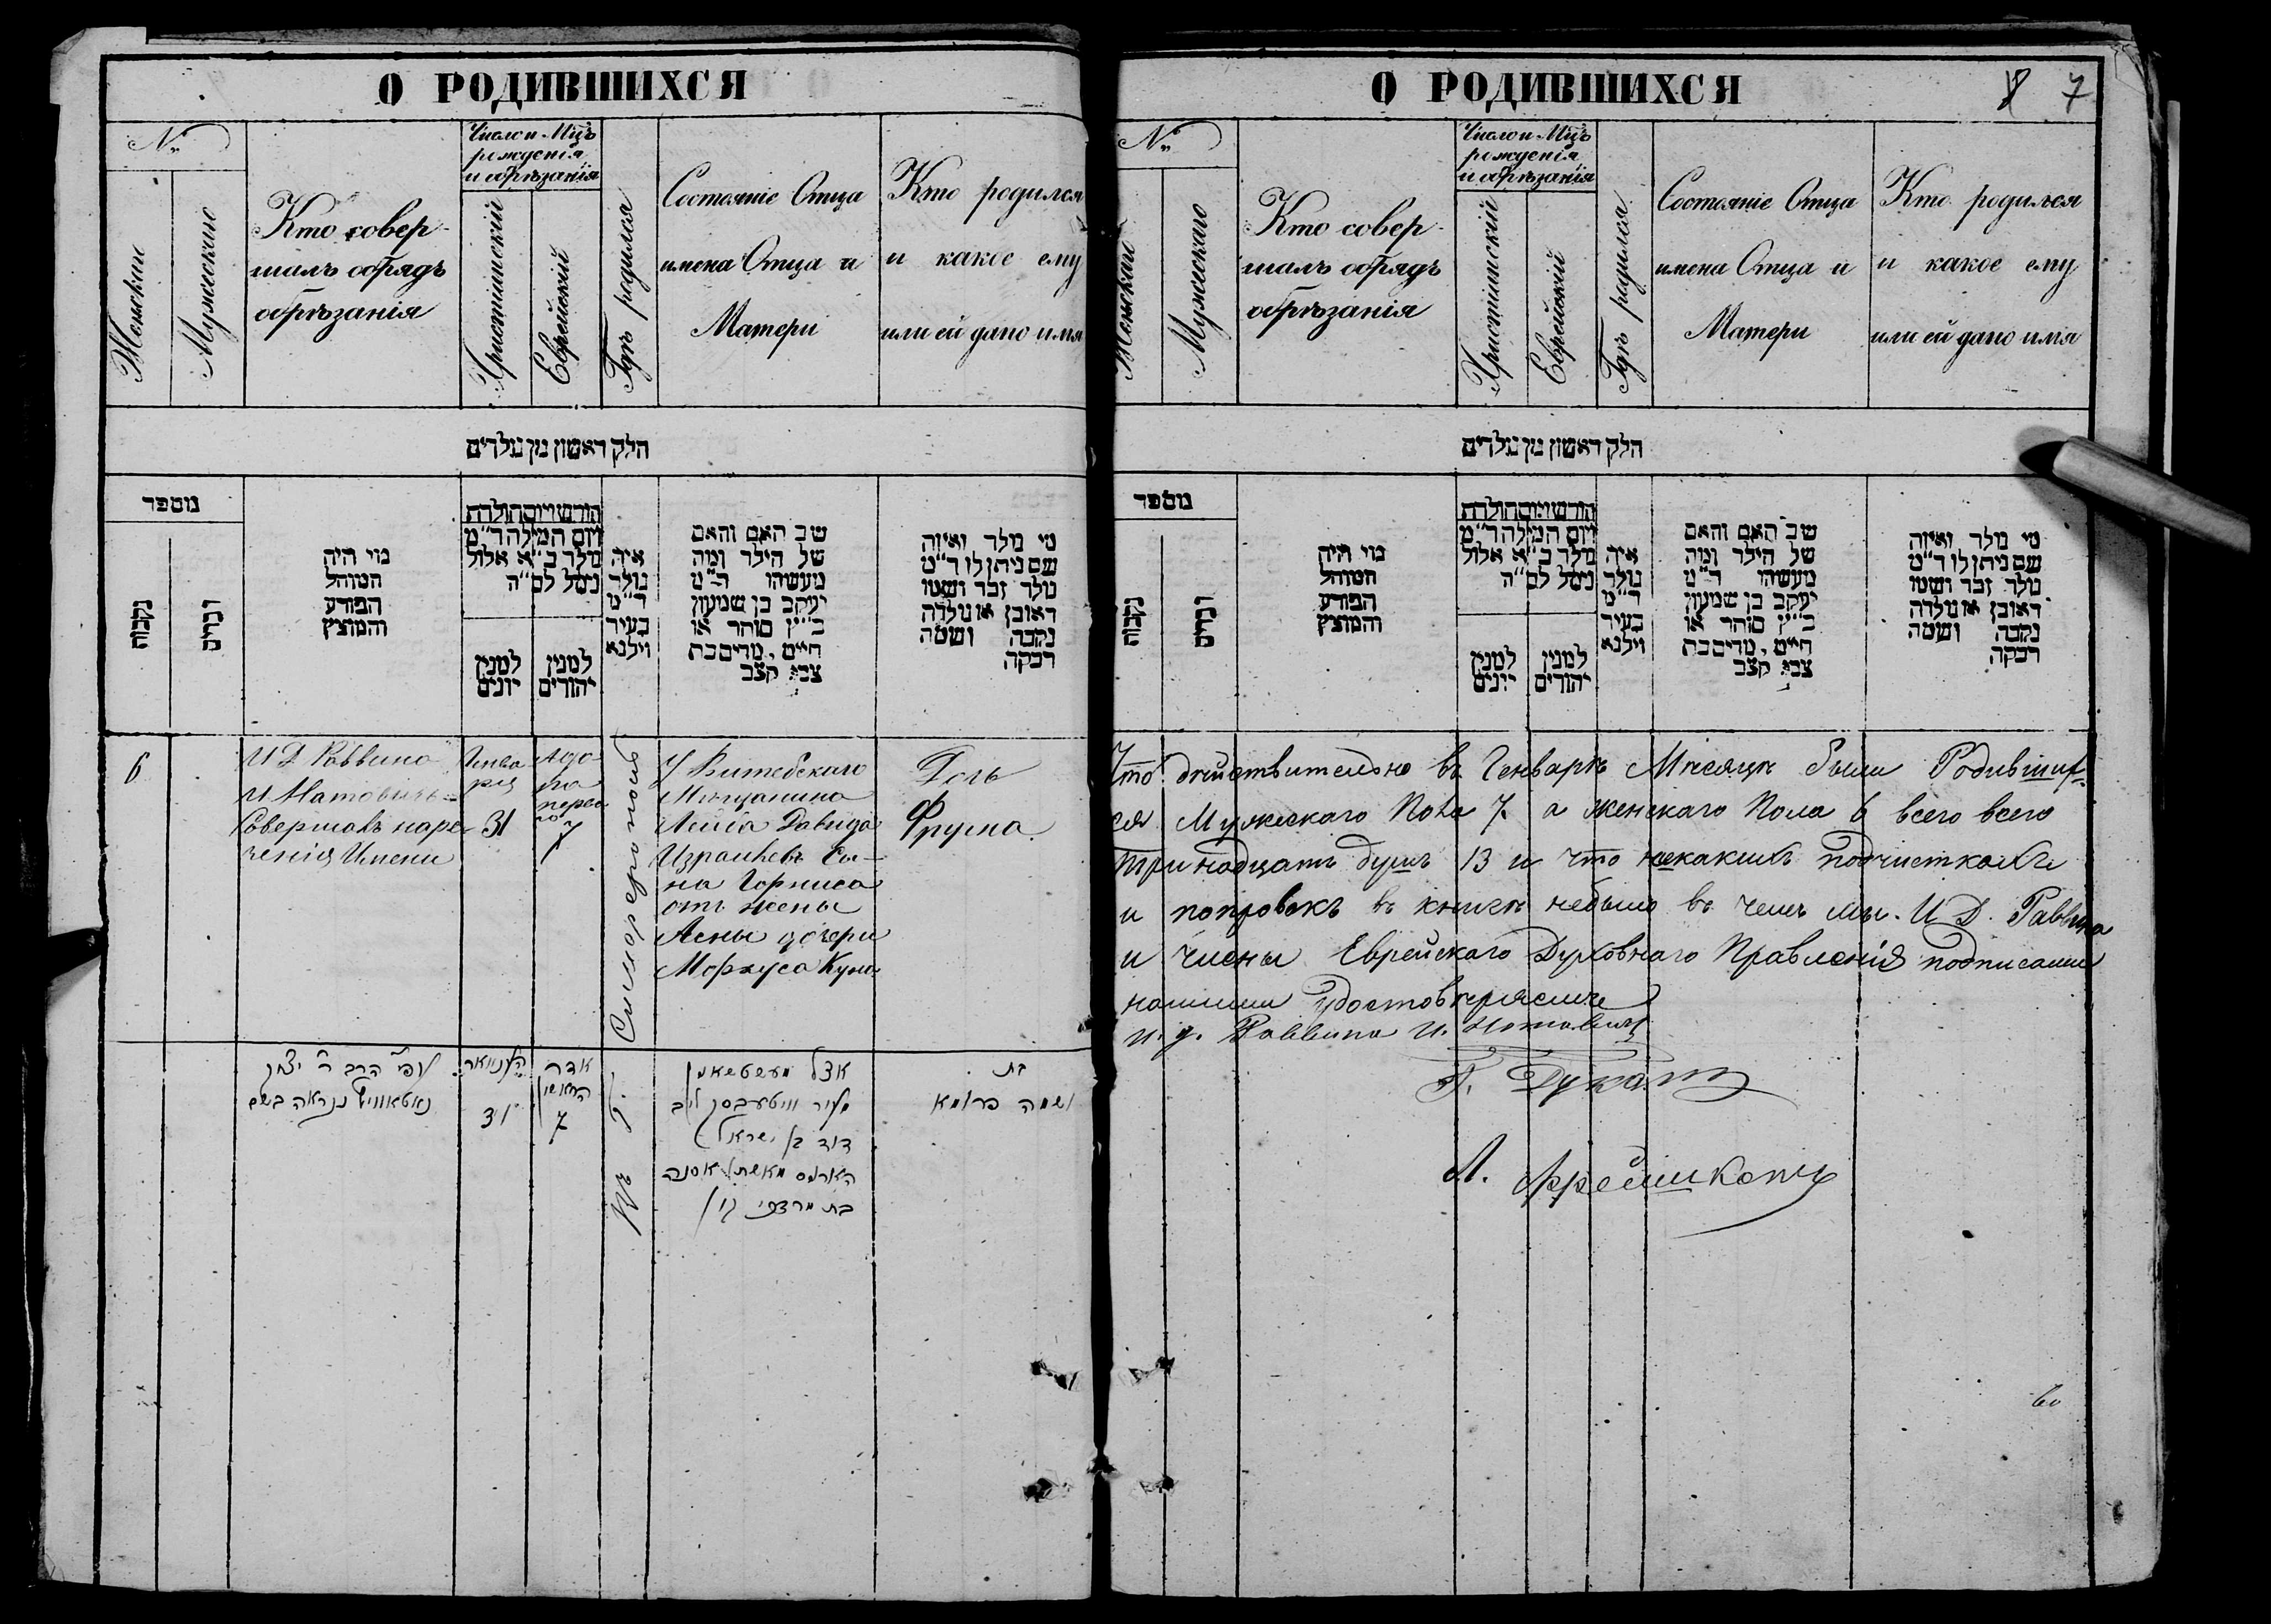 О РОДИВШИХСЯ
№
Женскаго
Мужескаго
Кто совер-
шалъ обрядъ
обрѣзанія
Число и Мцъ
рожденія
и обрѣзанія
Христіянскій
Еврейскій
Гдѣ родился
Состояніе Отца
имена Отца и
Матери
Кто родился
и какое ему
или ей дано имя
חלק ראשון מן נולדים
מספר
נקבות
זכרים
מי היה
המוהל
הפורע
והמוצץ
חודש ויום הולדת
ויום המילה ד״מ
נולד כ״א אלול
נימל לס״ה
למנין
יונים
למנין
יהודים
איה
נולד
ד״מ
בעיר
וילנא
שב האם והאם
של הילד ומה
מעשהו ד״מ
יעקב בן שמעון
כ״ץ סוחר או
חייט, מרים בת
צבי קצב
מי נולד ואיזה
שם ניתן לו ד״מ
נולד זכר ושמו
ראובן או נולדה
נקבה ושמה
רבקה
6
И Д Раввина
И Натовичъ
Совершавъ наре-
ченія Имени
Генва
ря
31
Адо-
ра
перва
го
7
У Витебскаго
Мѣщанина
Лейба Давида
Израилевъ Сы-
на Горниса
отъ жены
Асны дочери
Моркуса Куна
Дочь
Фрума
הרב ר׳ יצחק
יאנוואר
31
אדר
הראשון
7
אצל מעשטשאנין
דוד בן ישראל
מאשתו אסנה
בת
בת
ושמה פרומא
О РОДИВШИХСЯ
8 7
№
Женскаго
Мужескаго
Кто совер-
шалъ обрядъ
обрѣзанія
Число и Мцъ
рожденія
и обрѣзанія
Христіянскій
Еврейскій
Гдѣ родился
Состояніе Отца
имена Отца и
Матери
Кто родился
и какое ему
или ей дано имя
חלק ראשון מן נולדים
מספר
נקבות
זכרים
מי היה
המוהל
הפורע
והמוצץ
חודש ויום הולדת
ויום המילה ד״מ
נולד כ״א אלול
נימל לס״ה
למנין
יונים
למנין
יהודים
איה
נולד
ד״מ
בעיר
וילנא
שב האם והאם
של הילד ומה
מעשהו ד״מ
יעקב בן שמעון
כ״ץ סוחר או
חייט, מרים בת
צבי קצב
מי נולד ואיזה
שם ניתן לו ד״מ
נולד זכר ושמו
ראובן או נולדה
נקבה ושמה
רבקה
Что дѣйствительно въ Генварѣ Мѣсяцѣ были Родивших-
ся Мужескаго Пола 7 а женскаго Пола 6 всего всего
тринадцать душъ 13 и что некакихъ подчистокъ
и поправокъ въ книгѣ небыло въ чемъ мы. И Д. Раввина
и члены Еврейскаго Духовнаго Правленія подписами
нашими удостовѣряемъ
и. д. Раввина И. Нотовичъ
Г. Дукатъ
Л. Фрейшкопъ
60